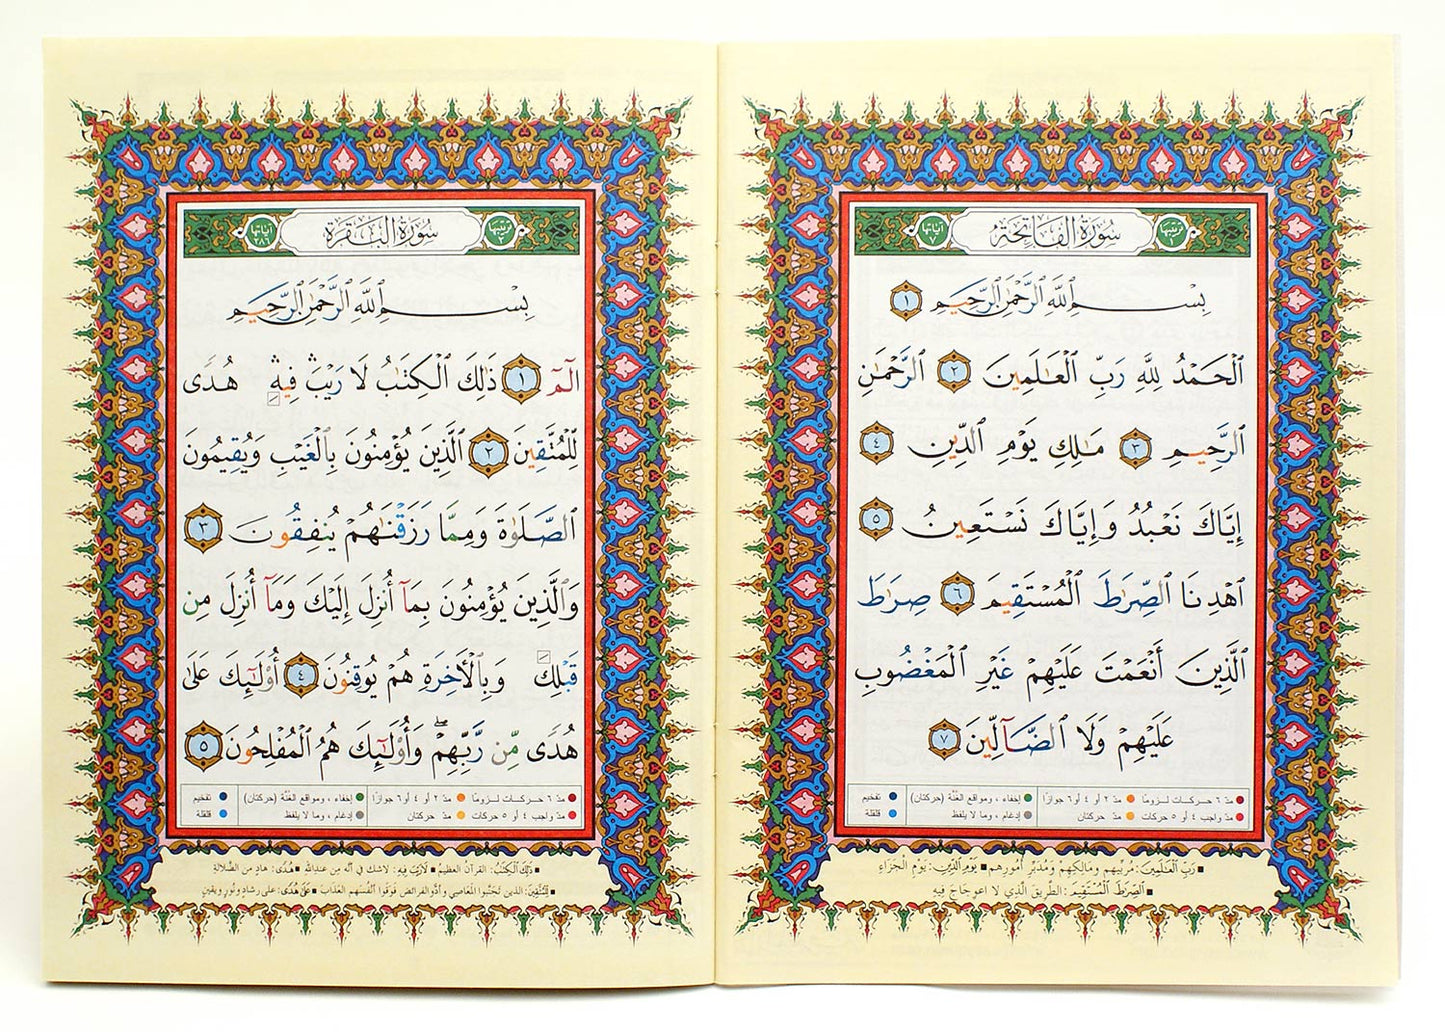 ترتيبها ١ سُورَةُ الفَاتِحَةِ آياتها ٧
بِسْمِ ٱللَّهِ ٱلرَّحْمَٰنِ ٱلرَّحِيمِ ١
ٱلْحَمْدُ لِلَّهِ رَبِّ ٱلْعَٰلَمِينَ ٢ ٱلرَّحْمَٰنِ
ٱلرَّحِيمِ ٣ مَٰلِكِ يَوْمِ ٱلدِّينِ ٤
إِيَّاكَ نَعْبُدُ وَإِيَّاكَ نَسْتَعِينُ ٥
ٱهْدِنَا ٱلصِّرَٰطَ ٱلْمُسْتَقِيمَ ٦ صِرَٰطَ
ٱلَّذِينَ أَنْعَمْتَ عَلَيْهِمْ غَيْرِ ٱلْمَغْضُوبِ
عَلَيْهِمْ وَلَا ٱلضَّآلِّينَ ٧
مدّ ٦ حركـات لـزومًا مدّ ٢ أو ٤ أو ٦ جوازًا إخفاء ، ومواقع الغُنَّة (حركتان) تفخيم
مدّ واجب ٤ أو ٥ حركات مدّ حركتان إدغام ، وما لا يلفظ قلقلة
■ رَبِّ الْعَالَمِينَ: مُرَبِّيهِم ومَالِكِهِم وَمُدَبِّرِ أُمُورِهِم ■ يَوْمِ الدِّينِ: يَوْمِ الْجَزَاءِ
■ الصِّرَاطَ الْمُسْتَقِيمَ: الطَّرِيقَ الَّذِي لا اعوِجَاجَ فِيهِ
ترتيبها ٢ سُورَةُ البَقَرَةِ آياتها ٢٨٦
بِسْمِ ٱللَّهِ ٱلرَّحْمَٰنِ ٱلرَّحِيمِ
الٓمٓ ١ ذَٰلِكَ ٱلْكِتَٰبُ لَا رَيْبَ ۛ فِيهِ ۛ هُدًى
لِّلْمُتَّقِينَ ٢ ٱلَّذِينَ يُؤْمِنُونَ بِٱلْغَيْبِ وَيُقِيمُونَ
ٱلصَّلَوٰةَ وَمِمَّا رَزَقْنَٰهُمْ يُنفِقُونَ ٣
وَٱلَّذِينَ يُؤْمِنُونَ بِمَآ أُنزِلَ إِلَيْكَ وَمَآ أُنزِلَ مِن
قَبْلِكَ وَبِٱلْأَخِرَةِ هُمْ يُوقِنُونَ ٤ أُو۟لَٰٓئِكَ عَلَىٰ
هُدًى مِّن رَّبِّهِمْ ۖ وَأُو۟لَٰٓئِكَ هُمُ ٱلْمُفْلِحُونَ ٥
مدّ ٦ حركـات لـزومًا مدّ ٢ أو ٤ أو ٦ جوازًا إخفاء ، ومواقع الغُنَّة (حركتان) تفخيم
مدّ واجب ٤ أو ٥ حركات مدّ حركتان إدغام ، وما لا يلفظ قلقلة
■ ذَلِكَ الْكِتَابُ: القرآن العظيم ■ لا رَيْبَ فِيهِ: لاشك في أنه من عند الله ■ هُدًى: هادٍ من الضَّلالة
■ لِلْمُتَّقِينَ: الذين تَجَنَّبُوا المعَاصِي وأدَّوا الفرائض فَوَقَوا أنْفُسَهم العَذَابَ ■ عَلَى هُدًى: على رشادٍ ونُورٍ ويقينٍ